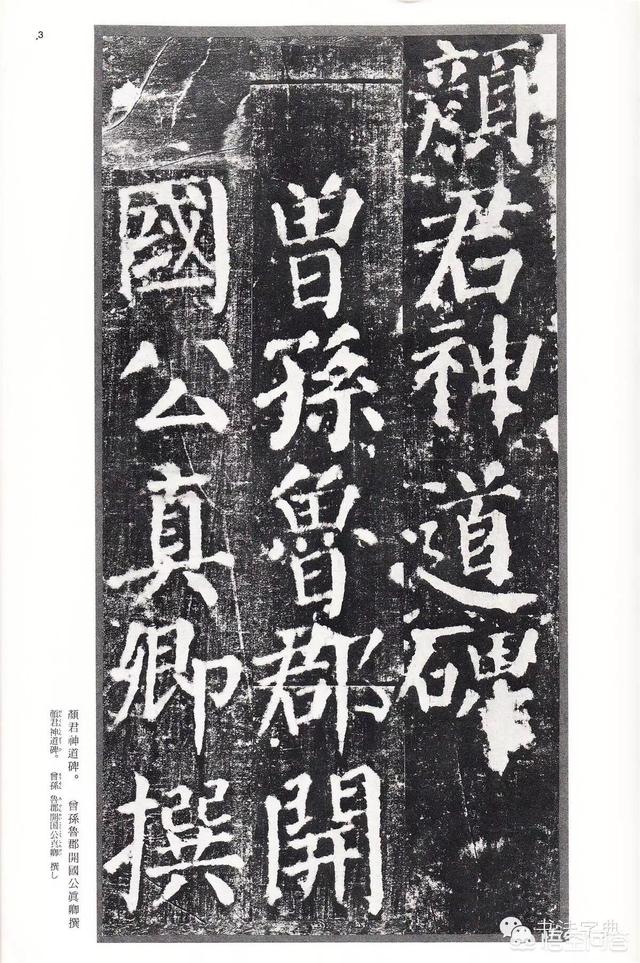 3
顔君神道碑
曾孫魯郡開
國公真卿撰
顏君神道碑。 曾孫魯郡開國公眞卿撰
顔君神道碑。 曾孫 魯郡開国公真卿 撰し
书法字典